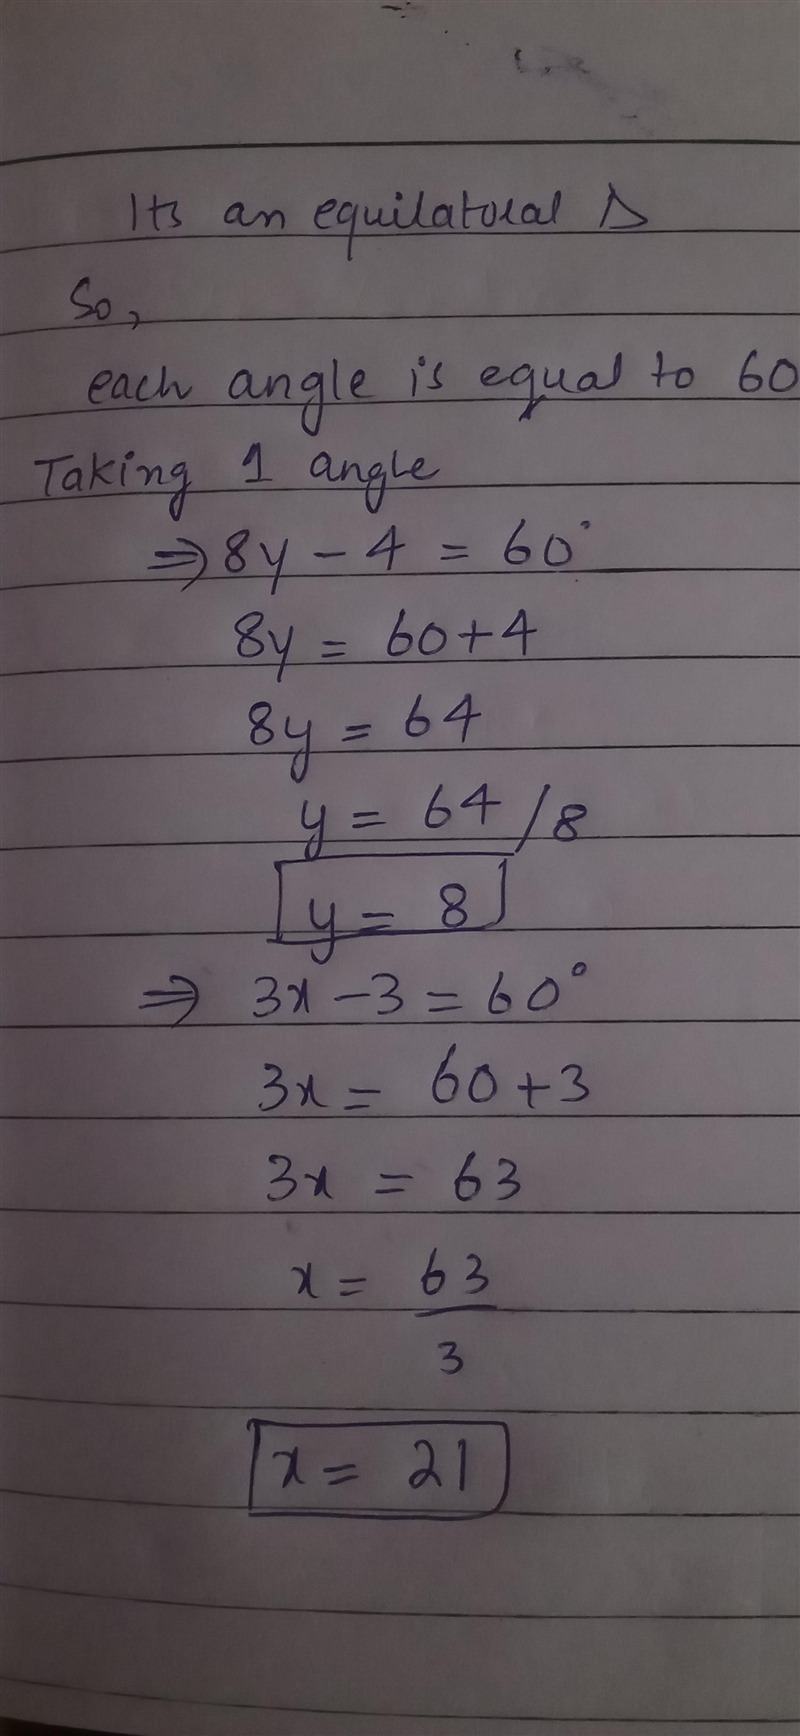 Its an equilatoral △
So,
each angle is equal to 60
Taking 1 angle
⇒ 8y - 4 = 60°
8y = 60+4
8y = 64
y = 64/8
y = 8
⇒ 3x - 3 = 60°
3x = 60+3
3x = 63
x = 63/3
x = 21